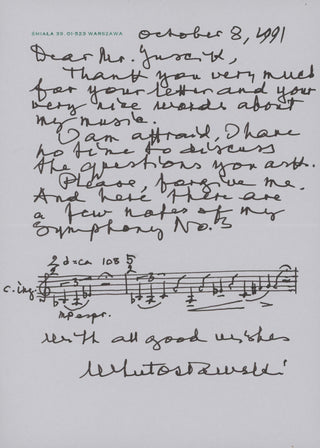 ŚMIAŁA 39. 01-523 WARSZAWA
October 8, 1991
Dear Mr. Juscik,
Thank you very much
for your letter and your
very nice words about
my music.
I am affraid, I have
no time to discuss
the questions you ask.
Please, forgive me.
And here there are
a few notes of my
Symphony No. 3
2/2 d=ca 108 5/2
3 3
c. ing.
mp espr.
With all good wishes
WLutosławski